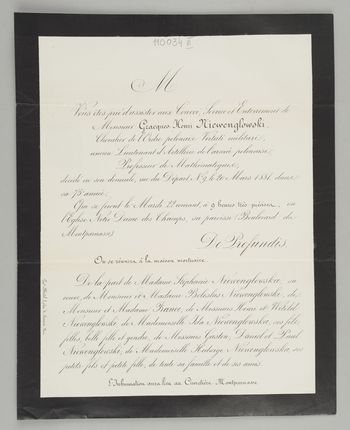 110034 II
M
Vous êtes prié d'assister aux Convoi, Service et Enterrement de
Monsieur Gracques Henri Niewenglowski,
Chevalier de l'Ordre polonais Virtuti militari,
ancien Lieutenant d'Artillerie de l'armée polonaise,
Professeur de Mathématiques,
décédé en son domicile, rue du Départ, Nº 9, le 20 Mars 1881, dans
sa 75e année;
Qui se feront le Mardi 22 courant, à 9 heures très précises, en
l'Église Notre Dame des Champs, sa paroisse (Boulevard du
Montparnasse)
De Profundis.
On se réunira à la maison mortuaire.
De la part de Madame Stéphanie Niewenglowska, sa
veuve, de Monsieur et Madame Boleslas Niewenglowski, de
Monsieur et Madame, de Messieurs Henri et Witold
Niewenglowski, de Mademoiselle Niewenglowska, ses fils,
filles, belle fille et gendre, de Messieurs Gaston, Daniel et Paul
Niewenglowski, de Mademoiselle Hedwige Niewenglowska, ses
petits-fils et petite fille, de toute sa famille et de ses amis.
L'Inhumation aura lieu au Cimetière Montparnasse.